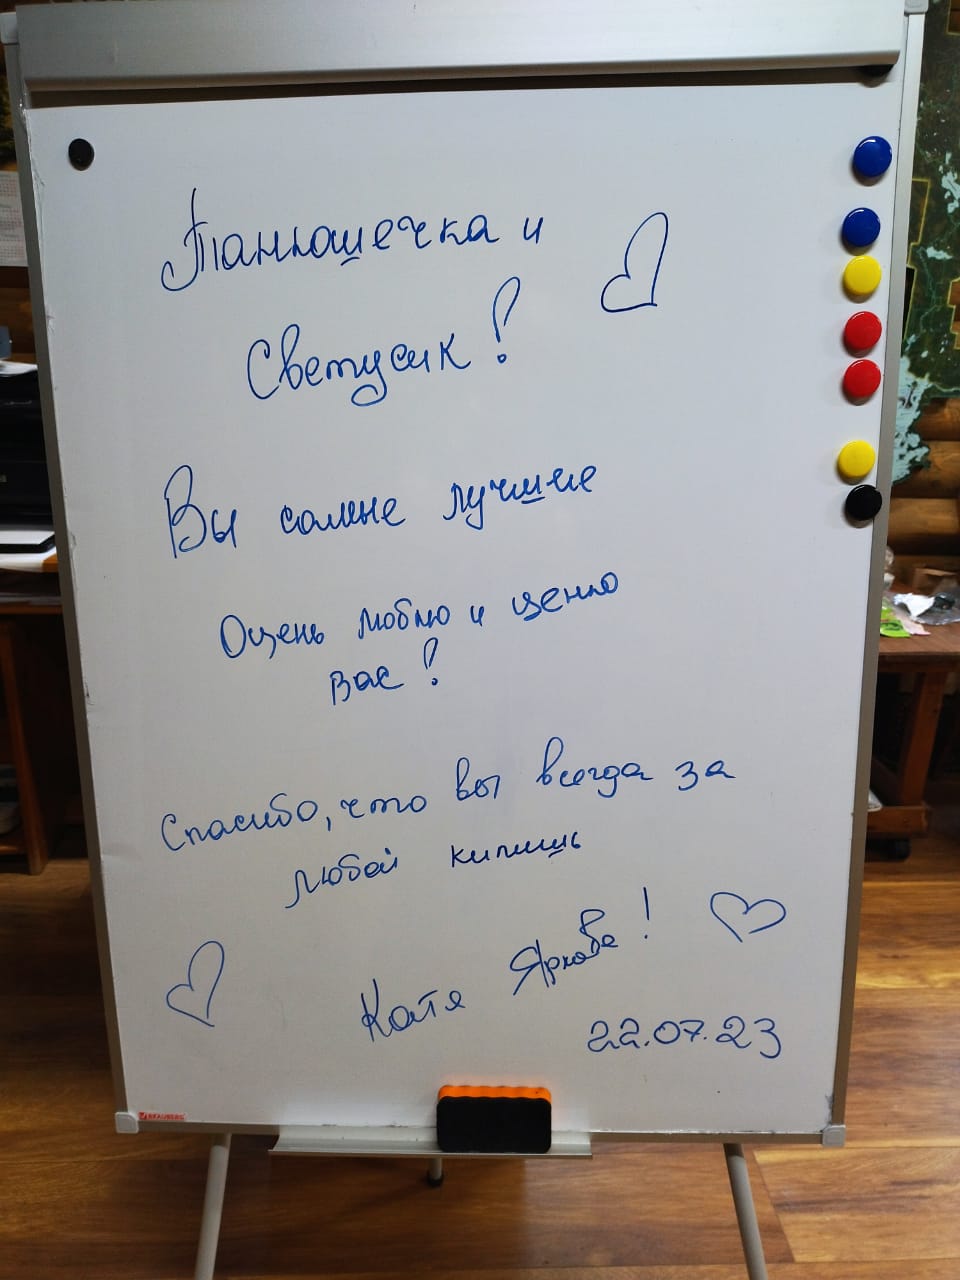 Танюшечка и
Светусик!
Вы самые лучшие
Очень люблю и ценю
вас!
Спасибо, что вы всегда за
любой кипишь
Катя Яркова!
22.07.23
BRAUBERG